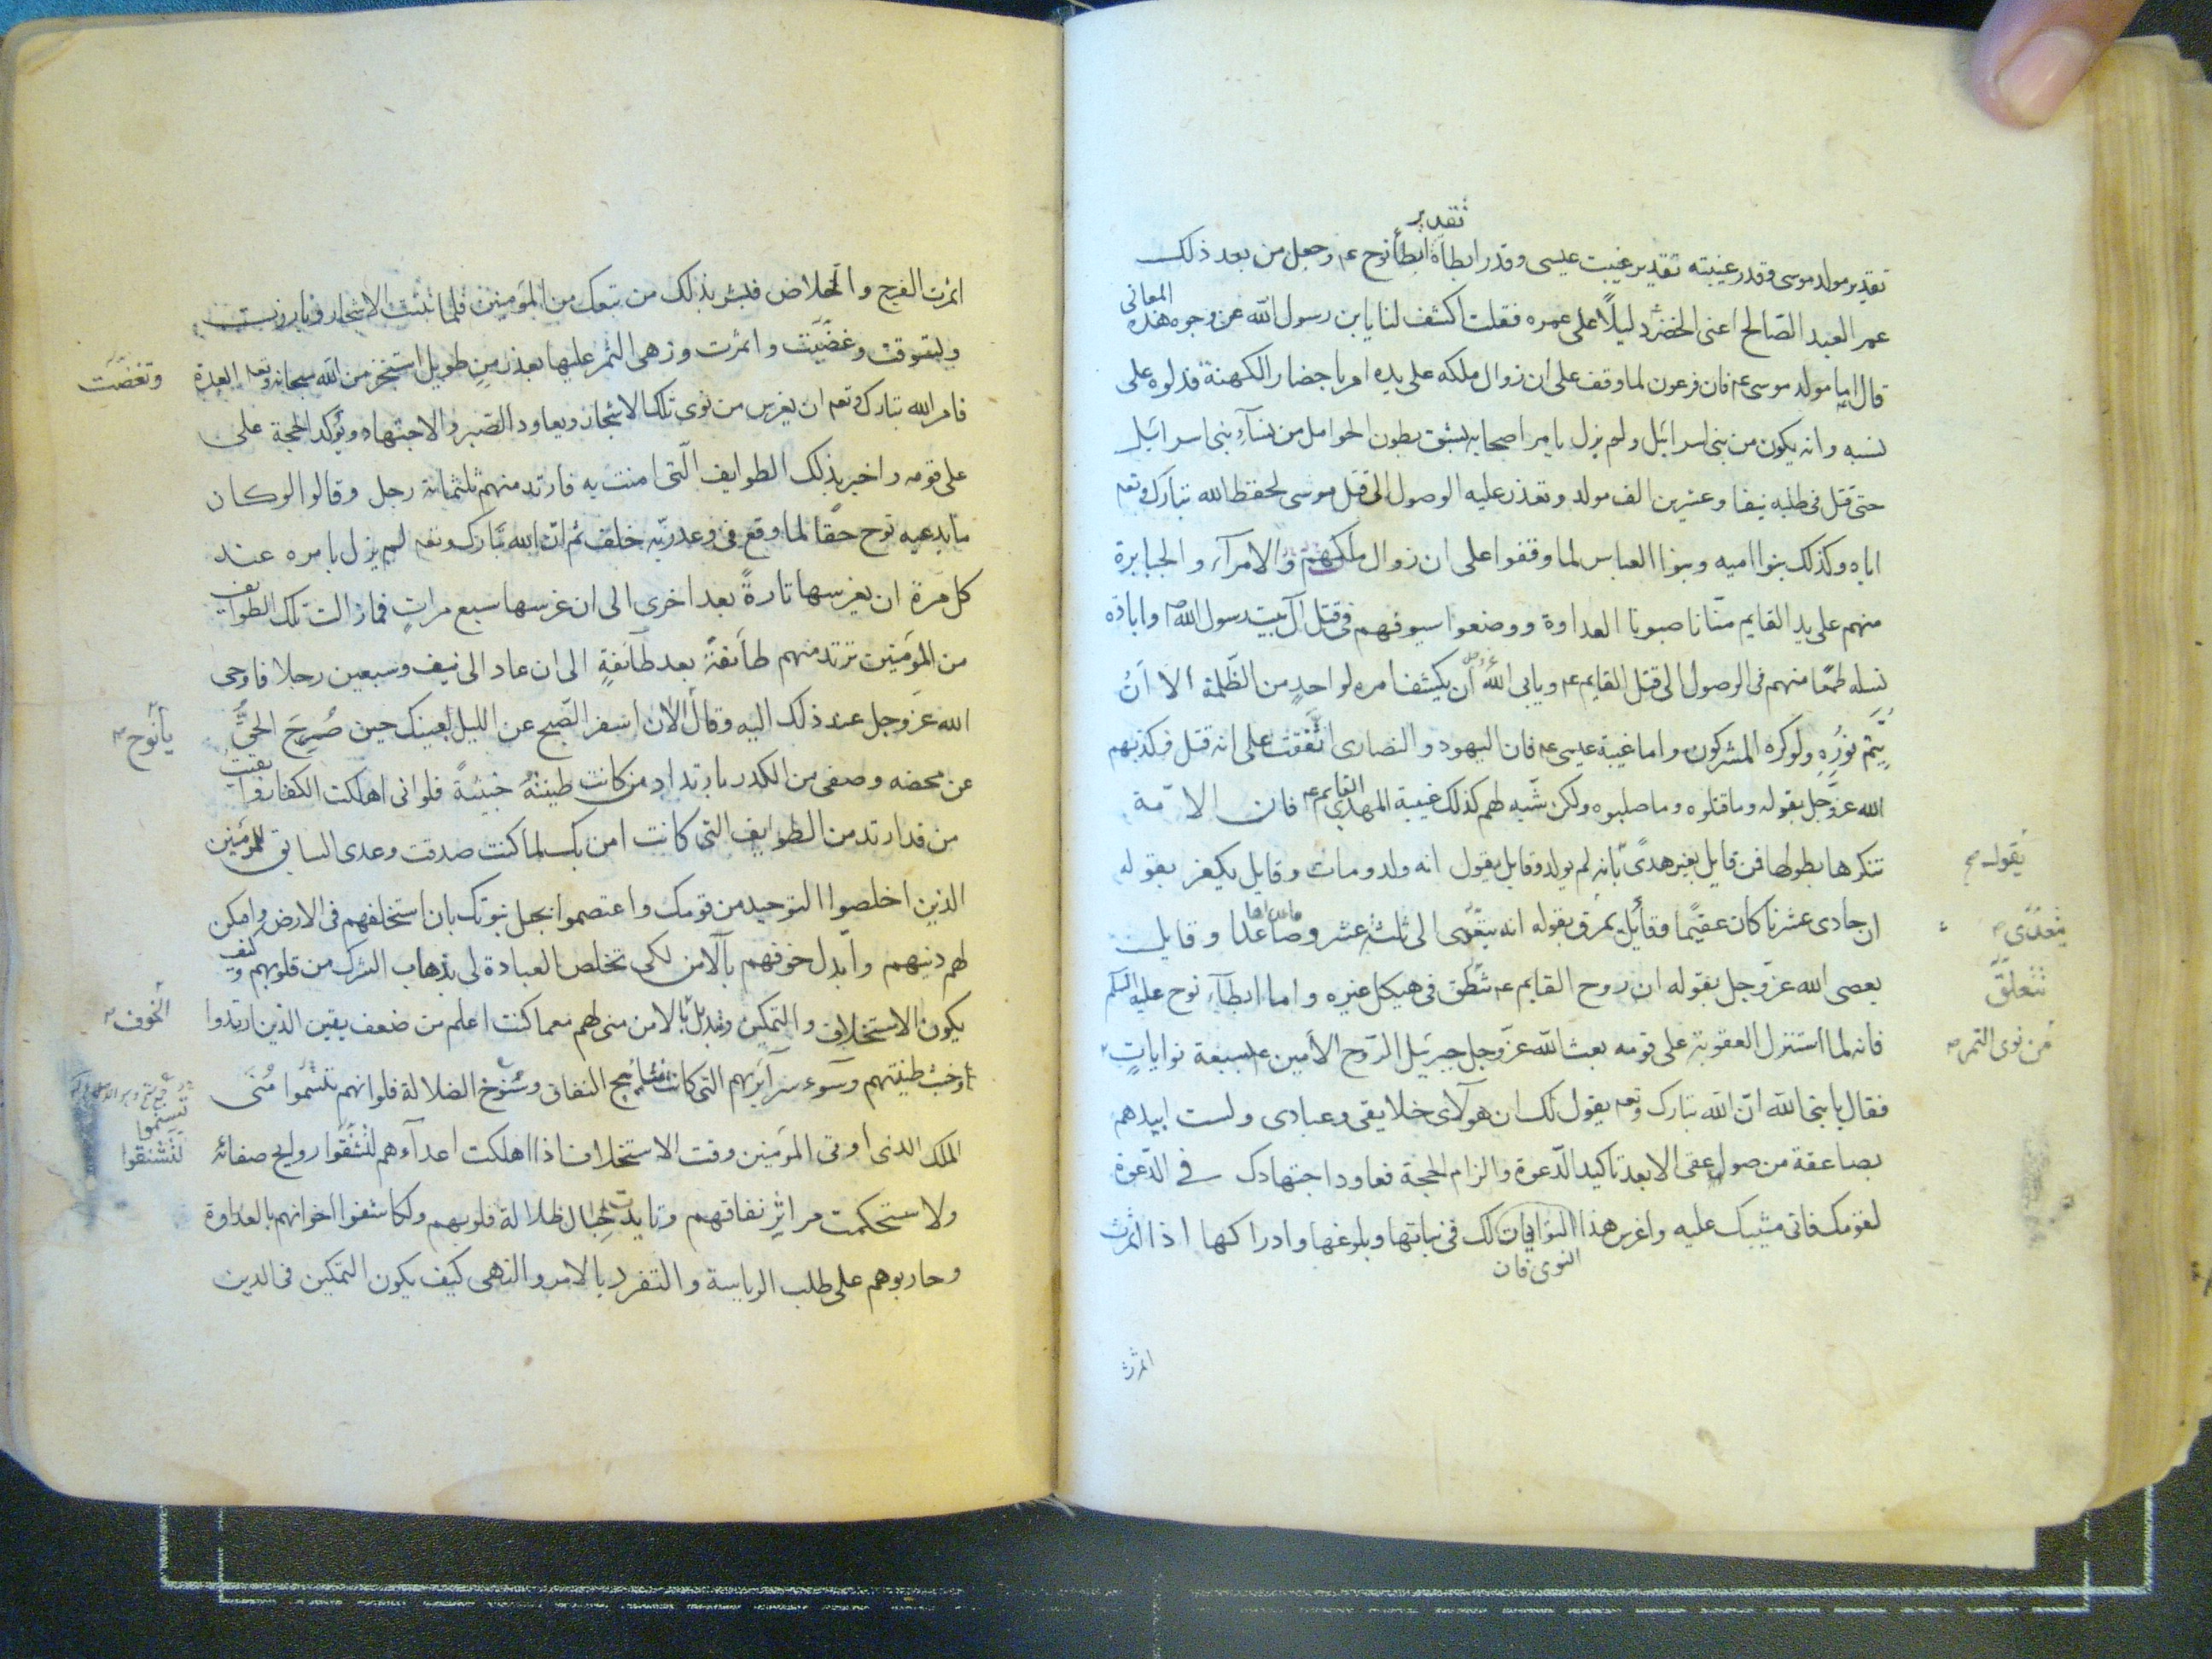 تقدير
تقدير مولد موسى وقدر غيبته تقدير غيبت عيسى وقدر ابطاه ابطأ نوح عم وجعل من بعد ذلك
المعانى
عمر العبد الصّالح اعنى الخضر دليلاً على عمره فقلت اكشف لنا يابن رسول الله عن وجوه هذه
قال اما مولد موسى عم فان فرعون لما وقف على ان زوال ملكه على يده امر باحضار الكهنة فدلوه على
نسبه وانه يكون من بنى اسرائيل ولم يزل يامر اصحابه بشق بطون الحوامل من نسآء بنى اسرائيل
حتى قتل فى طلبه نيفا وعشرين الف مولد وتعذر عليه الوصول الى قتل موسى لحفظ الله تبارك وتعم
اياه وكذلك بنوا اميه وبنوا العباس لما وقفوا على ان زوال ملكهم والامرآء والجبابرة
منهم على يد القايم منّا ناصبونا العداوة ووضعوا سيوفهم فى قتل آل بيت رسول الله ص وابادة
نسله طمعًا منهم فى الوصول الى قتل القايم عم ويابى الله عز وجل ان يكشف امره لواحدٍ من الظّلمة الا ان
يّتم نوره ولو كره المشركون واما غيبة عيسى عم فان اليهود والنصارى اتّفقت على انه قتل فكذبهم
الله عزّوجل بقوله وما قتلوه وما صلبوه ولكن شبّه لهم كذلك غيبة المهدى القايم عم فان الامّة
تنكرها بطولها فمن قايل بغير هدىً بانه لم يولد وقايل يقول انه ولد ومات وقايل يكفر بقوله
يقول صح
ان حادى عشرنا كان عقيمًا وقايل يمرق بقوله انه يتعدى الى ثالث عشر وصاعدا وقايل
يتعدّى
يعصى الله عزّوجل بقوله ان روح القايم عم تنطق فى هيكل غيره واما ابطآء نوح عليه السلم
تتعلّق
فانه لما استنزل العقوبة على قومه بعث الله عزّوجل جبرئيل الرّوح الأمين عم بسبعة نواياتٍ
من نوى التمر
فقال يا نبى الله انّ الله تبارك وتعم يقول لك ان هولآى خلايقى وعبادى ولست ابيدهم
بصاعقة من صواعقى الا بعد تاكيد الدّعوة والزام الحجة فعاود اجتهادك فى الدّعوة
لقومك فانى مثيبك عليه واغرس هذا النوايات لك فى نباتها وبلوغها وادراكها اذا اثمرت
النوى فان
اثمرت
اثمرت الفرج والخلاص فبشر بذلك من تبعك من المؤمنين فلما نبتت الاشجار وتازرت
وتسوقت وغضّيت واثمرت وزهى الثمر عليها بعد زمن طويل استنجز من الله سبحانه وتعم العدة
وتغضّت
فامر الله تبارك وتعم ان يغرس من نوى تلك الاشجار ويعاود الصّبر والاجتهاد ويؤكد الحجة على
على قومه واخبر بذلك الطوايف الّتى امنت به فارتد منهم ثلثمائة رجل وقالوا لو كان
ما يدعيه نوح حقًا لما وقع فى وعد ربّه خلف ثم انّ الله تبارك وتعم لم يزل يامره عند
كل مرة ان يغرسها تارةً بعد اخرى الى ان غرسها سبع مراتٍ فما زالت تلك الطوايف
من المؤمنين ترتد منهم طآئفةً بعد طآئفةٍ الى ان عاد الى نيف وسبعين رجلا فاوحى
الله عزّوجل عند ذلك اليه وقال الآن اسفر الصّبح عن الليل بعينك حين صُرِحَ الحقُّ
يا نوح
عن محضه وصفى من الكدر بارتداد من كانت طينته خبيثةً فلو انى اهلكت الكفار وابقيت
من قد ارتد من الطوايف التى كانت امن بك لما كنت صدقت وعدى السابق للمؤمنين
الذين اخلصوا التوحيد من قومك واعتصموا بحبل نبوتك بان استخلفهم فى الارض وامكن
لهم دينهم وابّدل خوفهم بالآمن لكى تخلص العبادة لى بذهاب الشرك من قلوبهم وكيف
يكون الاستخلاف والتمكين وتبديل بالامن منى لهم مع ما كنت اعلم من ضعف يقين الذين ارتدوا
الخوف
وخبث طينتهم وسوء سرآيرهم التى كانت نتايج النفاق وسُنوخ الضلالة فلو انهم تنسّموا منى
تنسموا
الملك الذى اوتى المؤمنين وقت الاستخلاف اذا اهلكت اعدآءهم لنشقوا روايح صفائه
لنشقوا
ولاستحكمت مراير نفاقهم وتايدت حبال ظلالة قلوبهم ولكاشفوا اخوانهم بالعداوة
وحاربوهم على طلب الرياسة والتفرد بالامر والنهى كيف يكون التمكين فى الدين